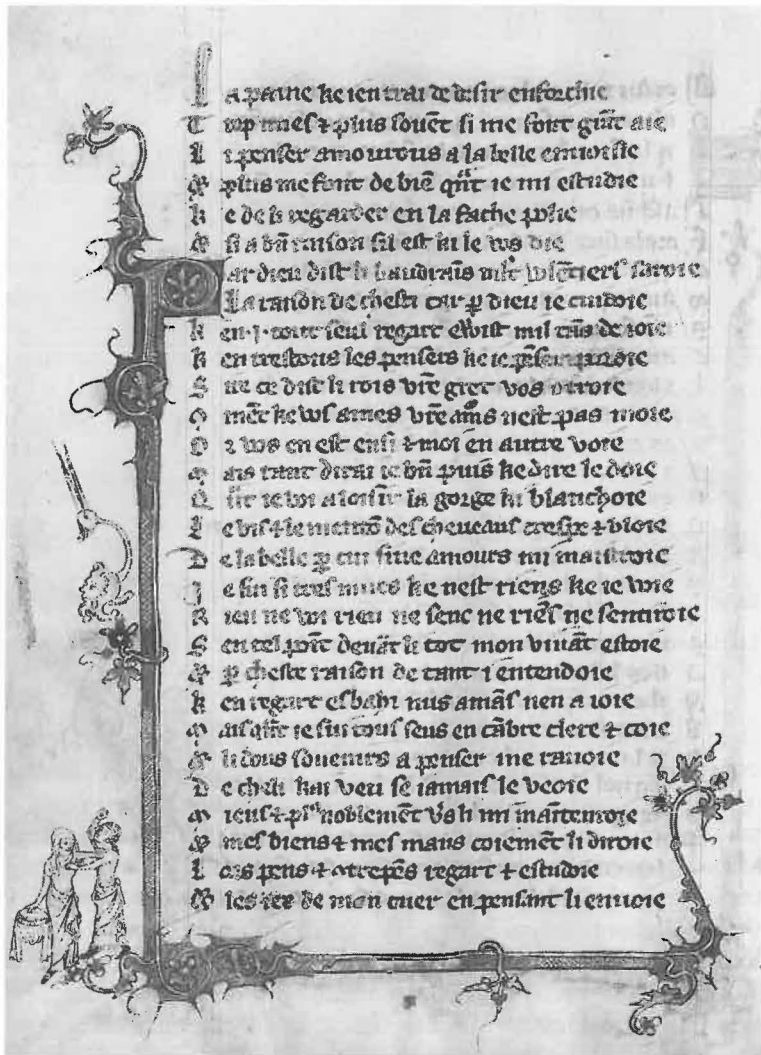 La paine ke ien trai de desir enforchie
Trop mies & plus souēt si me font grāt aie
Li penser amourous a la belle enuoisie
& plus me font de biē qn̄t ie mi estudie
ke de li regarder en la fache polie
& si a bn̄ raison sil est ki le vos die
Par dieu dist li baudrains mlt̄ volentiers saroie
La raison de chesti car ꝑ dieu ie cuidoie
ken .j. tout seul regart euist mil tās de ioie
ken trestous les pensers ke ie penser poroie
Sire ce dist li rois vr̄e gret vos otroie
ke vos ames vr̄e nest pas moie
vos en est ensi & moi en autre voie
Mais tant dirai ie bn̄ puis ke dire le doie
Qn̄t ie voi a loisir la gorge ki blanchoie
Le vis & le mentō des cheueaus crespe & bloie
De la belle ꝑ cui fine amours mi maistroie
Je sui si tres mues ke nest riens ke ie voie
Rien ne voi rien ne senc ne riēs ne sentiroie
Sen tel poīt deuāt li tot mon viuāt estoie
& ꝑ cheste raison de tant ientendoie
ken regart esbahi nus amās nen a ioie
Mais qn̄t ie sui tous seus en cābre clere & coie
& li dous souenirs a penser me rauoie
De cheli kai veu se iamais le veoie
Mieus & plus noblemēt vs̄ li mi maītenroie
& mes biens & mes maus coiemēt li diroie
Lors pens & otrepēs regart & estudie
& les iex de mon cuer en pensant li enuoie